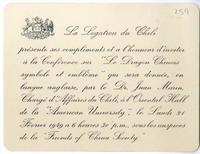 259
La Légation du Chili
présente ses compliments et a l'honneur d'inviter
à la Conférence sur "Le Dragon Chinois
symbole et emblème" qui sera donnée, en
langue anglaise, par le Dr. Juan Marín
Chargé d'Affaires du Chili, à l'Oriental Hall
de la "American University", le Lundi 21
Février 1949 à 6 heures 30 p.m., sous les auspices
de la "Friends of China Society"